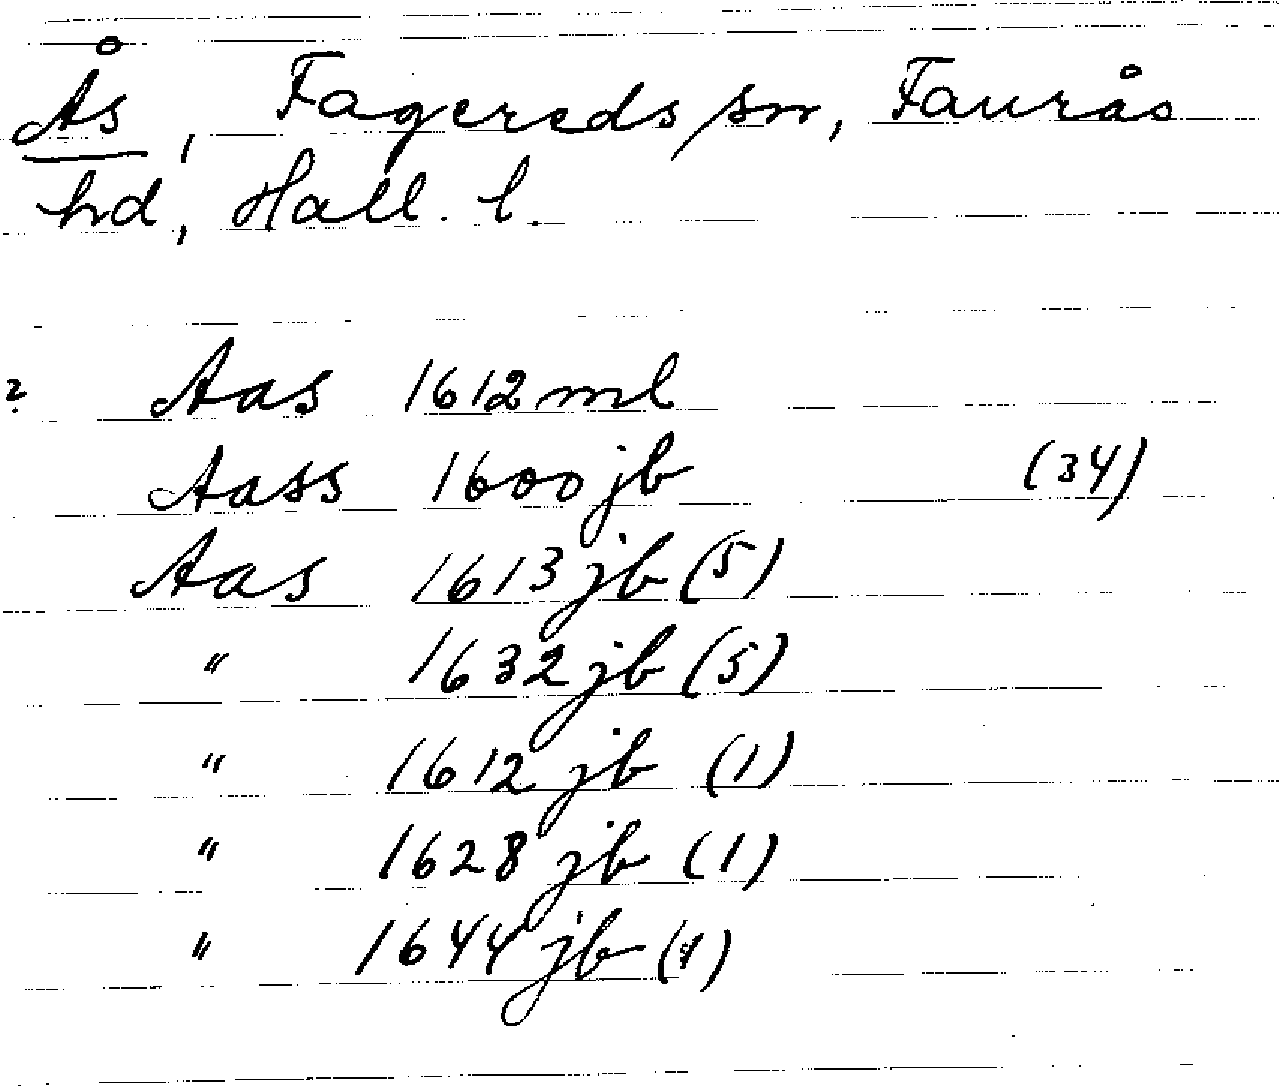 Ås, Fagereds sn, Faurås
hd, Hall. l.
? Aas 1612 ml
Aass 1600 jb (34)
Aas 1613 jb (5)
" 1632 jb (5)
" 1612 jb (1)
" 1628 jb (1)
" 1644 jb (1)